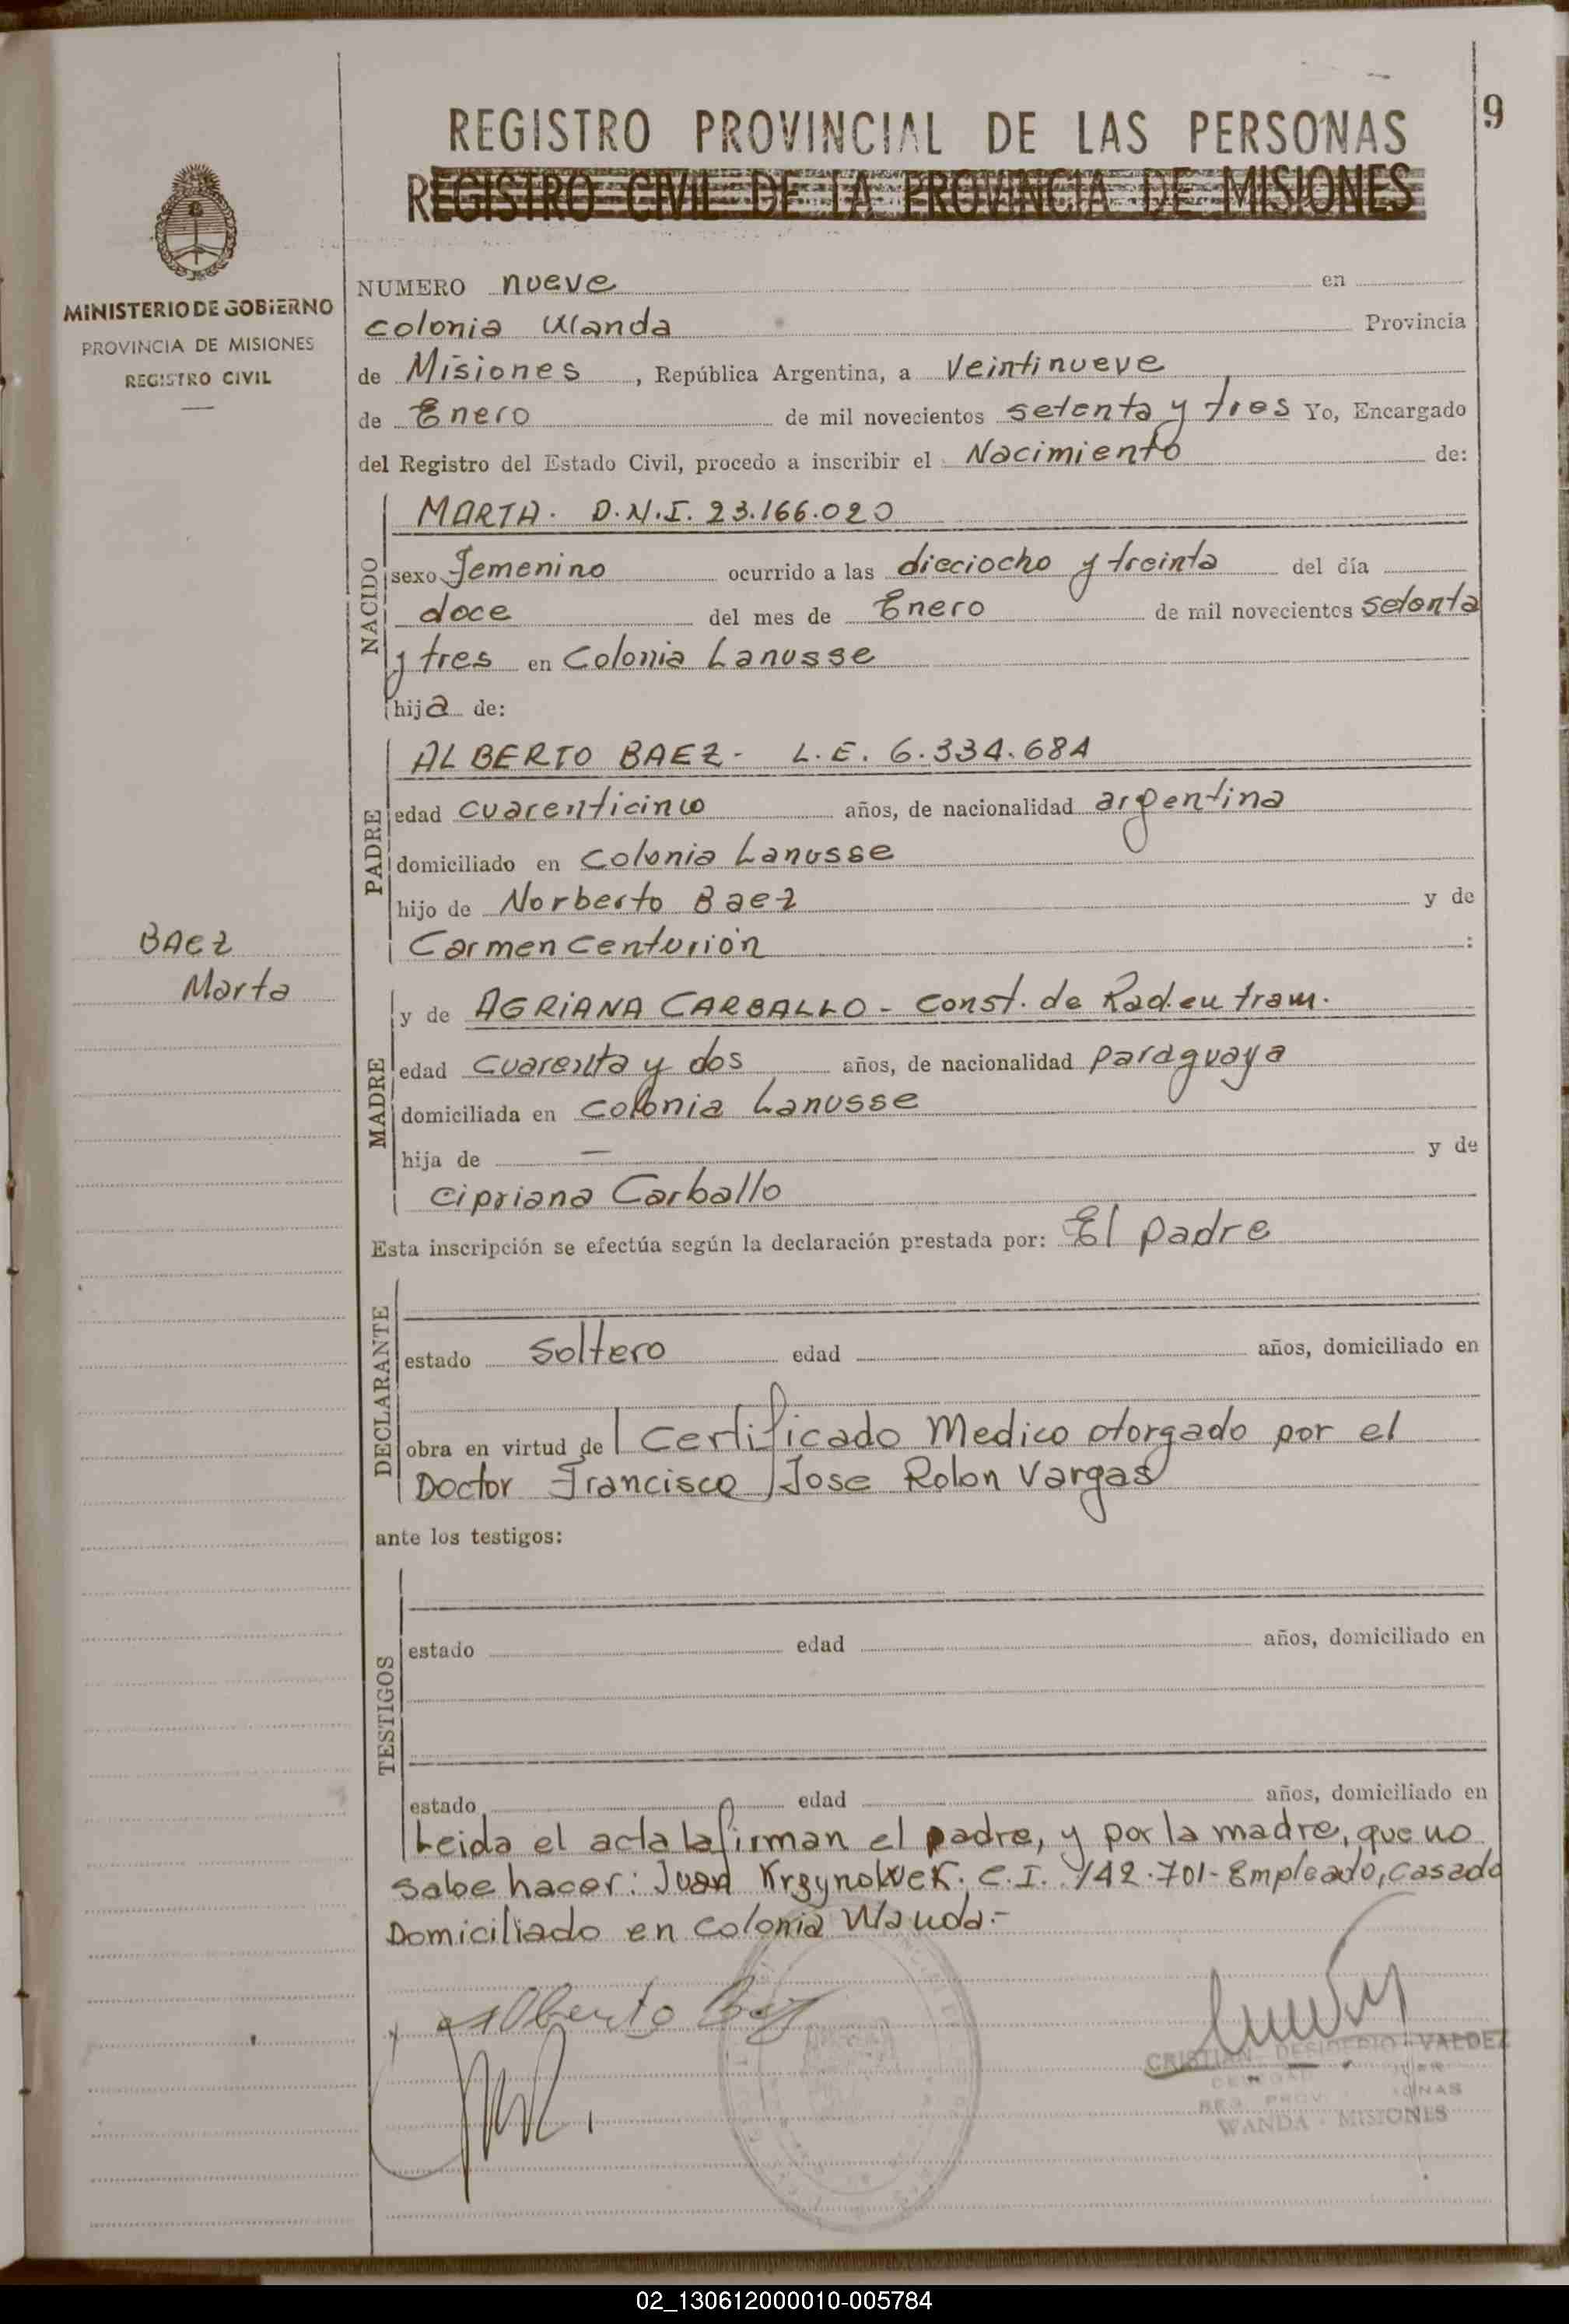 9
REGISTRO PROVINCIAL DE LAS PERSONAS
REGISTRO CIVIL DE LA PROVINCIA DE MISIONES
MINISTERIO DE GOBIERNO
PROVINCIA DE MISIONES
REGISTRO CIVIL
NUMERO nueve en
colonia Wanda Provincia
de Misiones, República Argentina, a Veintinueve
de Enero de mil novecientos setenta y tres Yo, Encargado
del Registro del Estado Civil, procedo a inscribir el Nacimiento de:
NACIDO
MARTA. D.N.I. 23.166.020
sexo Femenino ocurrido a las dieciocho y treinta del día
doce del mes de Enero de mil novecientos setenta
y tres en Colonia Lanusse
hija de:
PADRE
ALBERTO BAEZ- L.E. 6.334.684
edad cuarenticinco años, de nacionalidad argentina
domiciliado en Colonia Lanusse
hijo de Norberto Baez y de
Carmen Centurión :
BAEZ
Marta
MADRE
y de AGRIANA CARBALLO - Const. de Rad. en tram.
edad Cuarenta y dos años, de nacionalidad paraguaya
domiciliada en Colonia Lanusse
hija de — y de
Cipriana Carballo
Esta inscripción se efectúa según la declaración prestada por: El padre
DECLARANTE
estado soltero edad años, domiciliado en
obra en virtud de l Certificado Medico otorgado por el
Doctor Francisco Jose Rolon Vargas
ante los testigos:
TESTIGOS
estado edad años, domiciliado en
estado edad años, domiciliado en
Leida el acta la firman el padre, y por la madre, que no
sabe hacer: Juan C.I. 142.701- Empleado, casado
Domiciliado en colonia Wanda.-
Alberto Baez
CRISTIAN DESIDERIO VALDEZ
WANDA - MISIONES
02_130612000010-005784